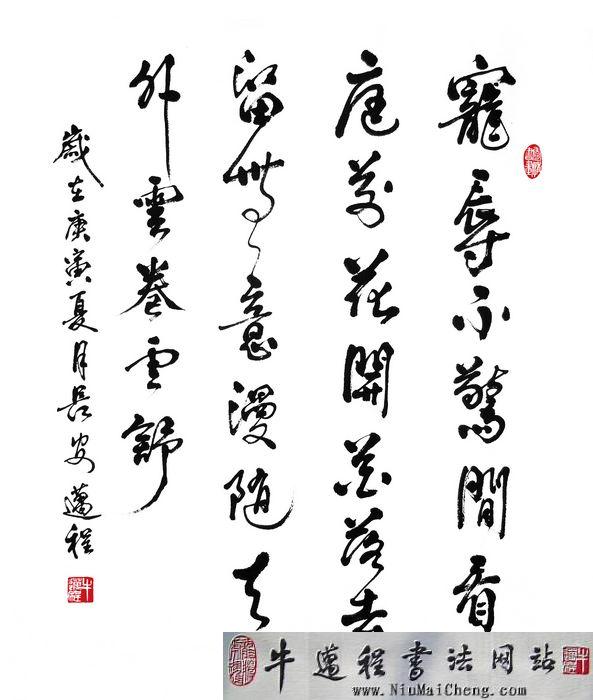 寵辱不驚閒看
庭前花開花落去
留無意漫隨天
外雲卷雲舒
歲在庚寅夏月長安邁程
牛邁程書法网站
www.NiuMaiCheng.com